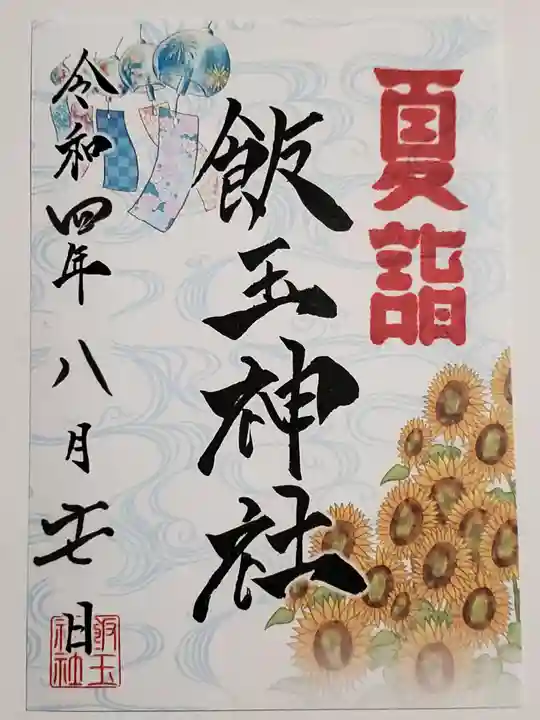 夏詣
飯玉神社
令和四年八月廿七日
飯玉
神社